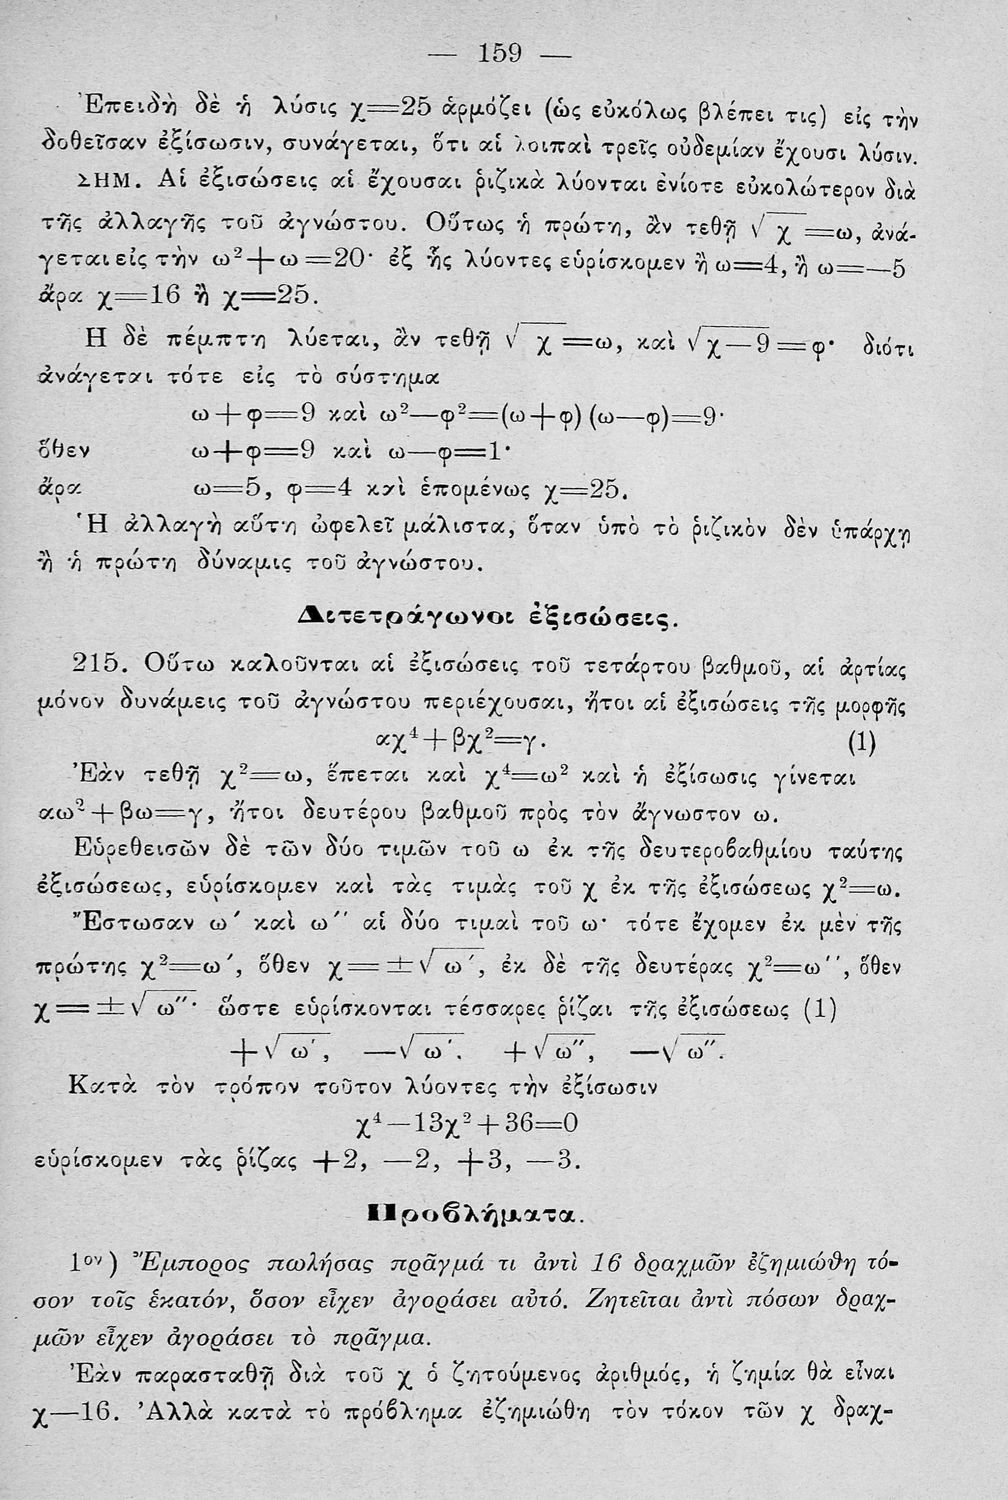 — 159 —
Ἐπειδὴ δὲ ἡ λύσις χ=25 ἁρμόζει (ὡς εὐκόλως βλέπει τις) εἰς τὴν
δοθεῖσαν ἐξίσωσιν, συνάγεται, ὅτι αἱ λοιπαὶ τρεῖς οὐδεμίαν ἔχουσι λύσιν.
ΣΗΜ. Αἱ ἐξισώσεις αἱ ἔχουσαι ῥιζικὰ λύονται ἐνίοτε εὐκολώτερον διὰ
τῆς ἀλλαγῆς τοῦ ἀγνώστου. Οὕτως ἡ πρώτη, ἂν τεθῇ √χ=ω, ἀνά-
γεται εἰς τὴν ω²+ω=20· ἐξ ἧς λύοντες εὑρίσκομεν ἢ ω=4, ἢ ω=—5
ἄρα χ=16 ἢ χ=25.
Η δὲ πέμπτη λύεται, ἂν τεθῇ √χ=ω, καὶ √χ—9=φ· διότι
ἀνάγεται τότε εἰς τὸ σύστημα
ω+φ=9 καὶ ω²—φ²=(ω+φ)(ω—φ)=9·
ὅθεν ω+φ=9 καὶ ω—φ=1·
ἄρα ω=5, φ=4 καὶ ἑπομένως χ=25.
Ἡ ἀλλαγὴ αὕτη ὠφελεῖ μάλιστα, ὅταν ὑπὸ τὸ ῥιζικὸν δὲν ὑπάρχῃ
ἢ ἡ πρώτη δύναμις τοῦ ἀγνώστου.
Διτετράγωνοι ἐξισώσεις.
215. Οὕτω καλοῦνται αἱ ἐξισώσεις τοῦ τετάρτου βαθμοῦ, αἱ ἀρτίας
μόνον δυνάμεις τοῦ ἀγνώστου περιέχουσαι, ἤτοι αἱ ἐξισώσεις τῆς μορφῆς
αχ⁴+βχ²=γ. (1)
Ἐὰν τεθῇ χ²=ω, ἕπεται καὶ χ⁴=ω² καὶ ἡ ἐξίσωσις γίνεται
αω²+βω=γ, ἤτοι δευτέρου βαθμοῦ πρὸς τὸν ἄγνωστον ω.
Εὑρεθεισῶν δὲ τῶν δύο τιμῶν τοῦ ω ἐκ τῆς δευτεροβαθμίου ταύτης
ἐξισώσεως, εὑρίσκομεν καὶ τὰς τιμὰς τοῦ χ ἐκ τῆς ἐξισώσεως χ²=ω.
Ἔστωσαν ω′ καὶ ω′′ αἱ δύο τιμαὶ τοῦ ω· τότε ἔχομεν ἐκ μὲν τῆς
πρώτης χ²=ω′, ὅθεν χ=±√ω′, ἐκ δὲ τῆς δευτέρας χ²=ω′′, ὅθεν
χ=±√ω′′· ὥστε εὑρίσκονται τέσσαρες ῥίζαι τῆς ἐξισώσεως (1)
+√ω′, —√ω′. +√ω′′, —√ω′′.
Κατὰ τὸν τρόπον τοῦτον λύοντες τὴν ἐξίσωσιν
χ⁴—13χ²+36=0
εὑρίσκομεν τὰς ῥίζας +2, —2, +3, —3.
Προβλήματα.
1ον) Ἔμπορος πωλήσας πρᾶγμά τι ἀντὶ 16 δραχμῶν ἐζημιώθη τό-
σον τοῖς ἑκατόν, ὅσον εἶχεν ἀγοράσει αὐτό. Ζητεῖται ἀντὶ πόσων δραχ-
μῶν εἶχεν ἀγοράσει τὸ πρᾶγμα.
Ἐὰν παρασταθῇ διὰ τοῦ χ ὁ ζητούμενος ἀριθμός, ἡ ζημία θὰ εἶναι
χ—16. Ἀλλὰ κατὰ τὸ πρόβλημα ἐζημιώθη τὸν τόκον τῶν χ δραχ-